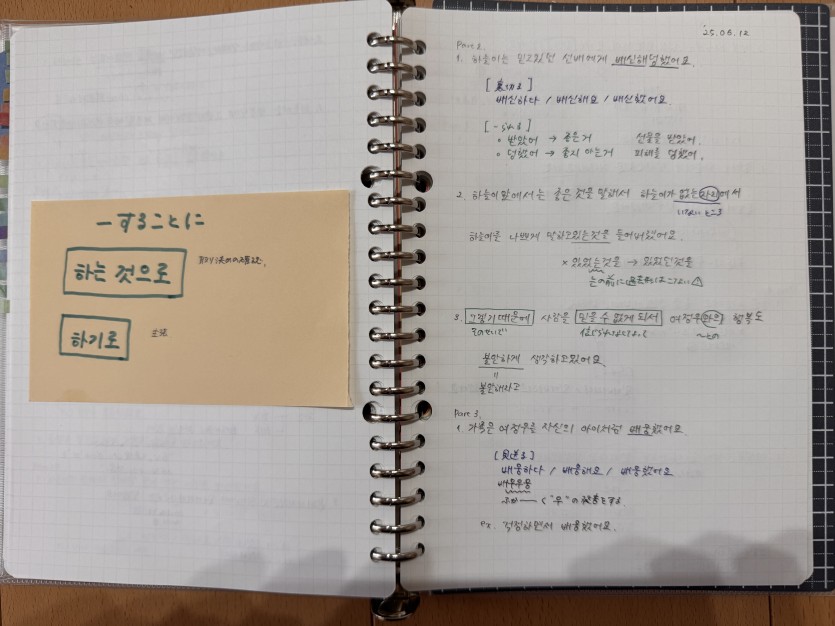 ーすることに
하는 것으로
하기로
'25.06.12
Part 2.
1. 하늘이는 믿고있던 선배에게 배신해덥했어요.
[裏切る]
배신하다 / 배신해요 / 배신했어요.
[-される]
• 받았어 → 좋은거 선물을 받았어.
• 덥했어 → 좋지 아는거 피해를 덥했어.
2. 하늘이앞에서는 좋은 것을 말해서 하늘이가 없는자리에서
いないところ
하늘이를 나쁘게 말하고있는것을 들어버렸어요.
× 있었는것을 → 있었던것을
3. 그렇기때문에 사람을 믿을 수 없게 되서 여정우와의 행복도
そのせいで
〜との
불안하게 생각하고있어요
불안해하고
Part 3.
1. 가족은 여정우를 자신의 아이처럼 배웅했어요.
[見送る]
배웅하다 / 배웅해요 / 배웅했어요
배우우웅
く "우" の発音をする
ex. 걱정하면서 배웅했어요.